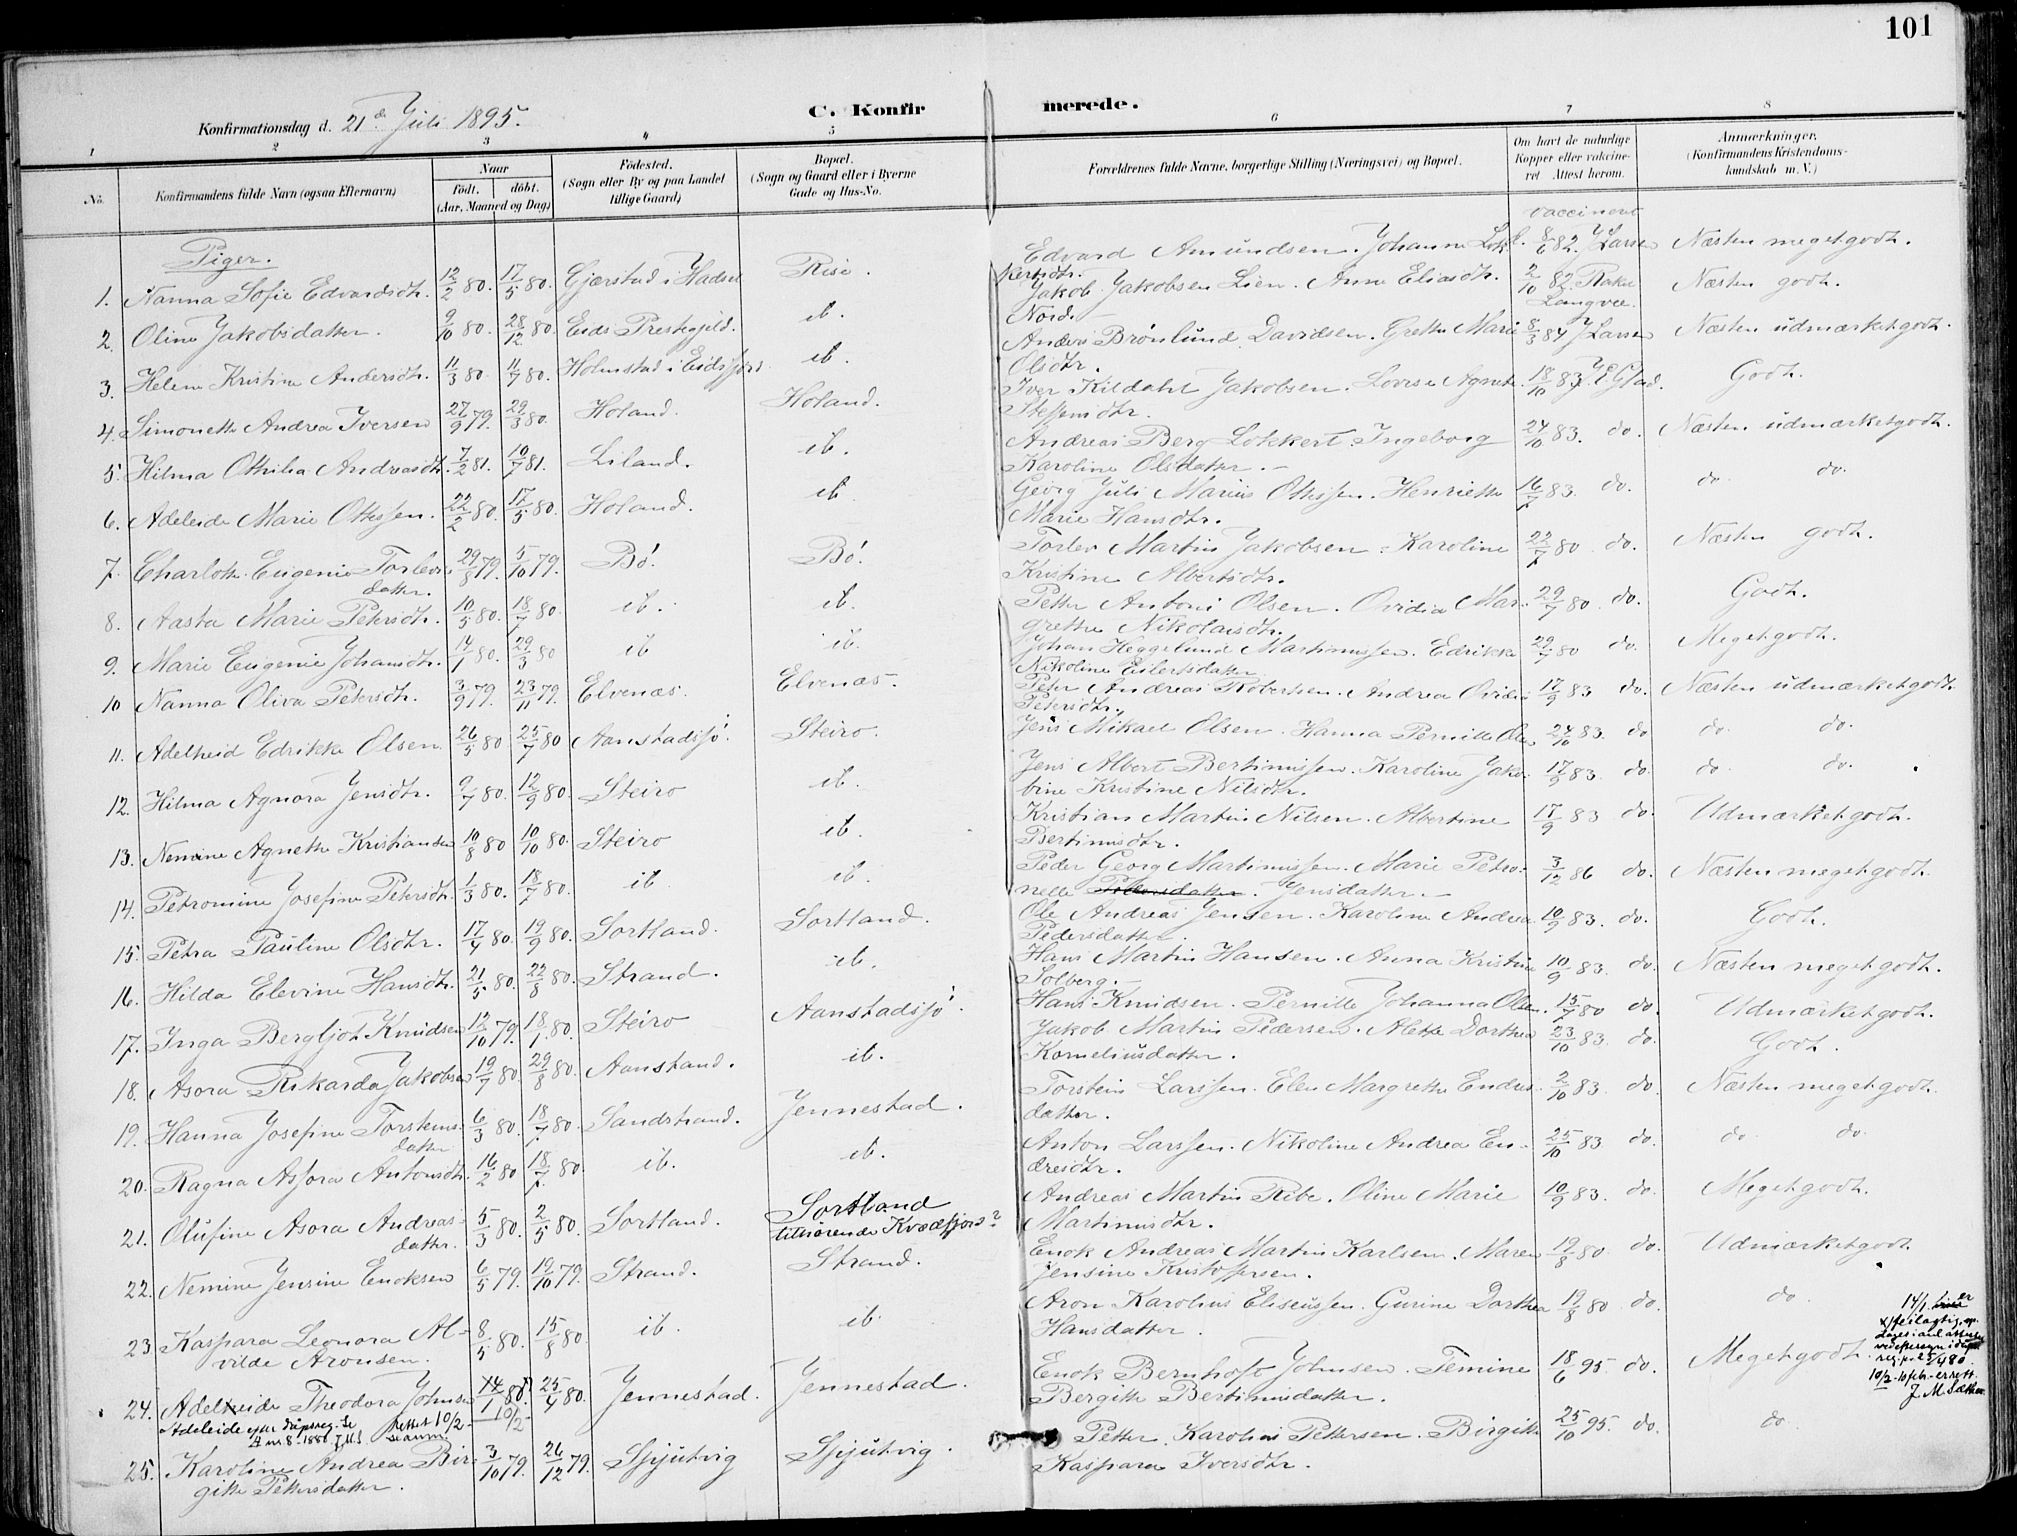 101
C. Konfirmerede.
Konfirmationsdag d. 21de Juli 1895.
1 2 3 4 5 6 7 8
No. Konfirmandens fulde Navn (ogsaa Efternavn) Naar Født. døbt. (Aar, Maaned og Dag) Fødested. (Sogn eller By og paa Landet tillige Gaard) Bopæl. (Sogn og Gaard eller i Byerne Gade og Hus-No. Forældrenes fulde Navne, borgerlige Stilling (Næringsvei) og Bopæl. Om havt de naturlige Kopper eller vakcineret Attest herom. Anmærkninger. (Konfirmandens Kristendomskundskab m. V.)
Piger. vaccineret
1. Nanna Sofie Edvardsdtr. 12/2 80. 17/5 80. Gjærstad i Hadsel Rise. Edvard Amundsen. Johanna Lokkertsdtr. 8/6 82. J Larsen Næsten meget godt.
2. Oline Jakobsdatter. 9/10 80. 28/12 80. Eids Prestegjeld. ib. Jakob Jakobsen Lien. Anne Eliasdtr. Nord. 2/10 82. Rake Langvee. Næsten godt.
3. Helene Kristine Andersdtr. 11/3 80. 11/7 80. Holmstad i Eidsfjord ib. Anders Brønlund Davidsen. Grethe Marie Olsdtr. 8/3 84 J Larsen Næsten udmærket godt.
4. Simonette Andrea Iversen 27/9 79. 29/3 80. Holand. Holand. Iver Kildahl Jakobsen. Lovise Agnete Steffensdtr. 18/10 83. J. E. Glad. Godt.
5. Hilma Othilia Andreasdtr. 7/2 81. 10/7 81. Liland. ib. Andreas Berg Lokkert. Ingeborg Karoline Olsdatter. 24/10 83. do. Næsten udmærket godt.
6. Adeleide Marie Ottessen. 22/2 80. 17/5 80. Holand. ib. Georg Juli Marius Ottessen. Henriette Marie Hansdtr. 16/7 83. do. do. do.
7. Charlotte Eugenie Torlevsdatter. 29/8 79. 5/10 79. Bø. Bø. Torlev Martin Jakobsen. Karoline Kristine Albertsdtr. 22/7 80 do. Næsten godt.
8. Aasta Marie Petersdtr. 10/5 80. 18/7 80. ib. ib. Petter Antoni Olsen. Ovidia Margrethe Nikolaisdtr. 29/7 80. do. Godt.
9. Marie Eugenie Johansdtr. 14/1 80. 29/3 80 ib ib. Johan Heggelund Martinussen. Edrikke Nikoline Eilertsdatter 29/7 80 do. Meget godt.
10 Nanna Oliva Petersdtr. 3/9 79. 23/11 79. Elvenæs. Elvenæs. Peter Andreas Robertsen. Andrea Ovidia Petersdtr. 17/9 83 do. Næsten udmærket godt.
11. Adelheid Edrikke Olsen 26/5 80 25/7 80 Aanstadsjø. Steiro. Jens Mikael Olsen. Hanna Pernille Olsen 24/10 83. do do. do.
12. Hilma Agnora Jensdtr. 9/7 80. 12/9 80. Steiro ib. Jens Albert Bertinussen. Karoline Jakobine Kristine Nilsdtr. 17/9 83. do. do. do.
13. Nemine Agnette Kristiansen 10/8 80 10/10 80. Steiro ib. Kristian Martin Nilsen. Albertine Bertinusdtr. 17/9 83 do. Udmærket godt.
14. Petromine Josefine Petersdtr. 1/3 80. 18/7 80. ib. ib. Peder Georg Martinussen. Marie Petronelle Pedersdatter. Jensdatter. 3/12 86 do. Næsten meget godt.
15. Petra Pauline Olsdtr. 17/4 80. 19/9 80. Sortland. Sortland. Ole Andreas Jensen. Karoline Andrea Pedersdatter. 10/9 83. do. Godt.
16. Hilda Elevine Hansdtr. 21/5 80. 22/8 80. Strand. ib. Hans Martin Hansen. Anna Kristina Solberg. 10/9 83. do. Næsten meget godt.
17. Inga Bergljot Knudsen 12/10 79. 18/1 80. Steiro Aanstadsjø. Hans Knudsen. Pernille Johanna Olsen. 15/7 80 do. Udmærket godt.
18. Asora Rikarda Jakobsen 19/7 80. 29/8 80. Aanstand. ib. Jakob Martin Pedersen. Alette Dorthea Korneliusdatter. 23/10 83. do. Godt.
19. Hanna Josefine Torsteinsdatter 6/3 80. 18/7 80. Sandstrand. Jennestad. Torstein Larssen. Elen Margrethe Endresdatter. 2/10 83. do. Næsten meget godt.
20. Ragna Assora Antonsdtr. 16/2 80. 18/7 80. ib. ib. Anton Larssen. Nikoline Andrea Endresdtr. 25/10 83 do. do. do.
21. Olufine Asora Andreasdatter. 5/3 80. 2/5 80. Sortland. Sortland tilhørende Kvædfjord? Andreas Martin Ribe. Oline Marie Martinusdtr. 10/9 83. do. Meget godt.
22. Nemine Jensine Enoksen 6/5 79. 19/10 79. Strand. Strand. Enok Andreas Martin Karlsen. Maren Jensine Kristoffersen. 19/8 80. do. Udmærket godt.
23. Kaspara Leonora Alvilde Aronsen. 8/5 80. 15/8 80. ib. ib. Aron Karolius Eliseussen. Gurine Dorthea Hansdatter. 19/8 80 do. do.
24. Adelheide Theodora Johnsen 14/1 80. 25/4 80. Jennestad. Jennestad. Enok Bernhoft Johnsen. Temine Bergitte Bertinusdatter. 18/6 95 do. Meget godt.
Adeleide efter dåpsreg. Rettet 10/2 — 10/2 —
14/1 er feilagtig
10/2 - er rett
J. M. Sæther
25. Karoline Andrea Birgitte Pettersdatter. 3/10 79. 26/12 79. Spjutvig Spjutvig. Petter Karolius Pettersen. Birgitte Kaspara Iversdtr. 25/10 95. do. do.